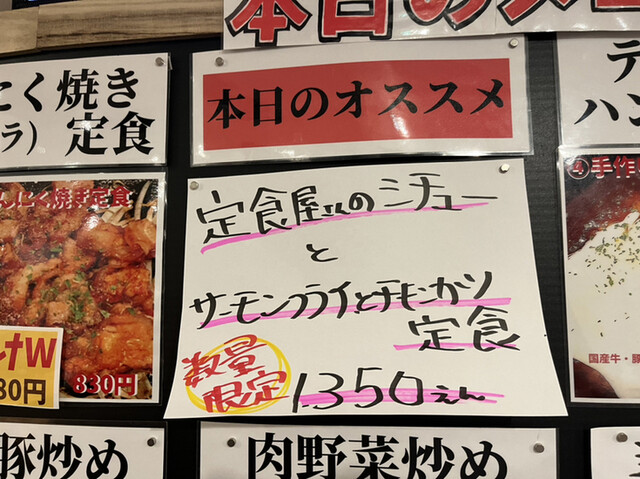 本日のメニ
にく焼き
ラ）定食
本日のオススメ
デ
ハン
んにく焼き定食
830円
80円
定食屋さんのシチュー
と
サーモンフライとチキンカツ
定食
数量
限定
1.350えん
④手作
国産牛・豚
豚炒め
肉野菜炒め